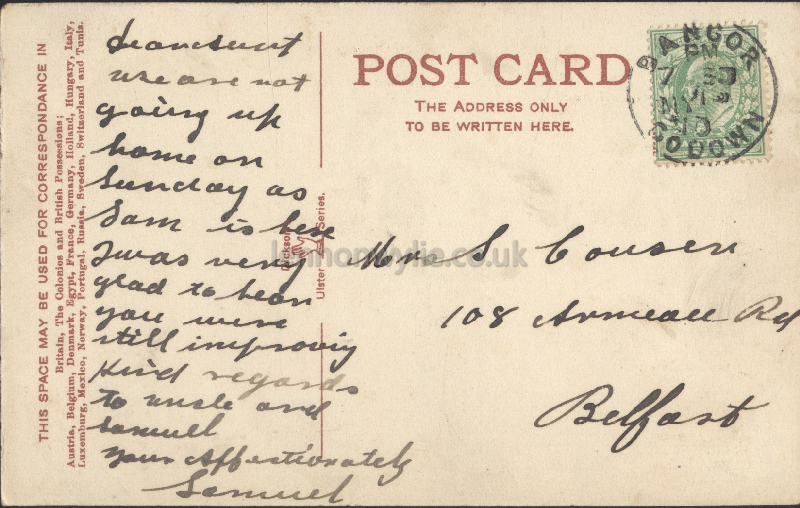 THIS SPACE MAY BE USED FOR CORRESPONDANCE IN
Britain, The Colonies and British Possessions;
Austria, Belgium, Denmark, Egypt, France, Germany, Holland, Hungary, Italy,
Luxemburg, Mexico, Norway, Portugal, Russia, Sweden, Switzerland and Tunis.
Dear Aunt
we are not
going up
home on
Sunday as
Sam is here
I was very
glad to hear
you were
still improving
Kind regards
to uncle and
Samuel
your Affectionately
Samuel
Dickson
Ulster Series.
POST CARD
THE ADDRESS ONLY
TO BE WRITTEN HERE.
BANGOR
PM
7 30
MY
10
CO DOWN
Mrs S Cousen
108 Armeau Rd
Belfast
lennonwylie.co.uk